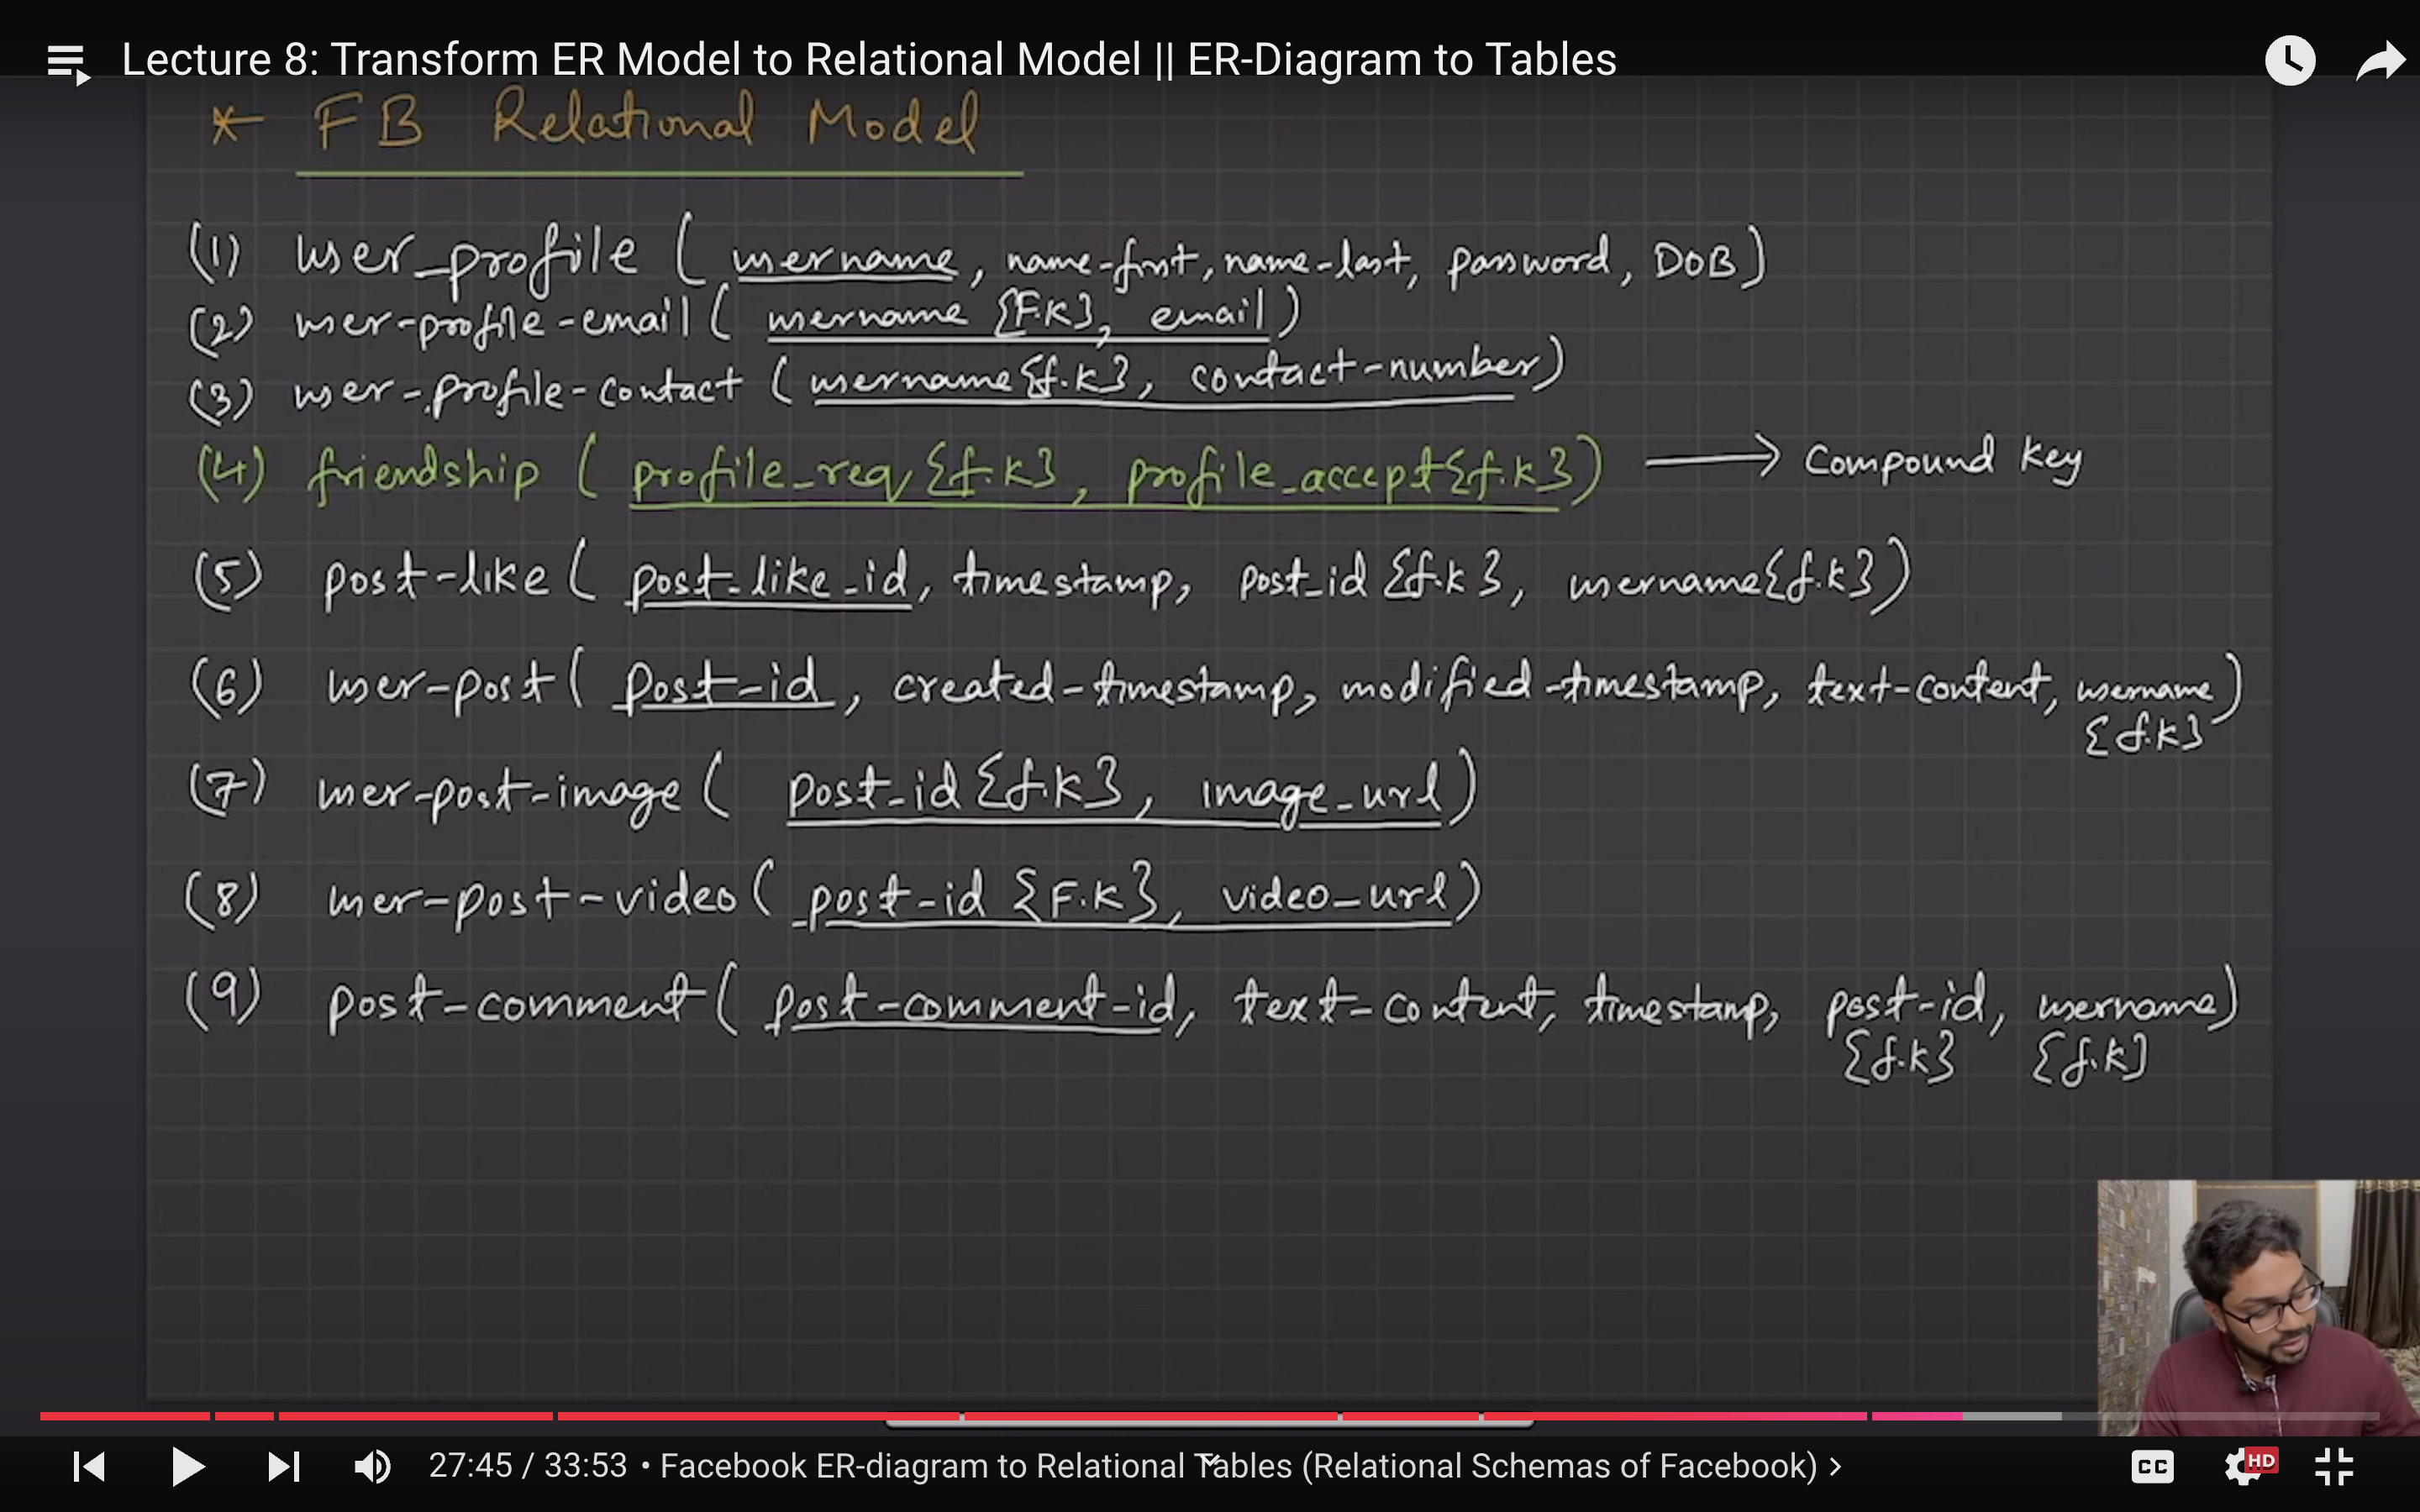 Lecture 8: Transform ER Model to Relational Model || ER-Diagram to Tables
* FB Relational Model
(1) user_profile ( username, name-first, name-last, password, DOB)
(2) user-profile-email ( username {F.K}, email )
(3) user-profile-contact ( username {f.k}, contact-number)
(4) friendship ( profile_req {f.k}, profile_accept {f.k}) → Compound key
(5) post-like ( post_like_id, timestamp, post_id {f.k}, username {f.k})
(6) user-post ( post-id, created-timestamp, modified-timestamp, text-content, username)
{f.k}
(7) user-post-image ( post_id {f.k}, image_url)
(8) user-post-video ( post-id {F.K}, video_url)
(9) post-comment ( post-comment-id, text-content, timestamp, post-id, username)
{f.k} {f.k}
27:45 / 33:53 • Facebook ER-diagram to Relational Tables (Relational Schemas of Facebook) >
CC HD